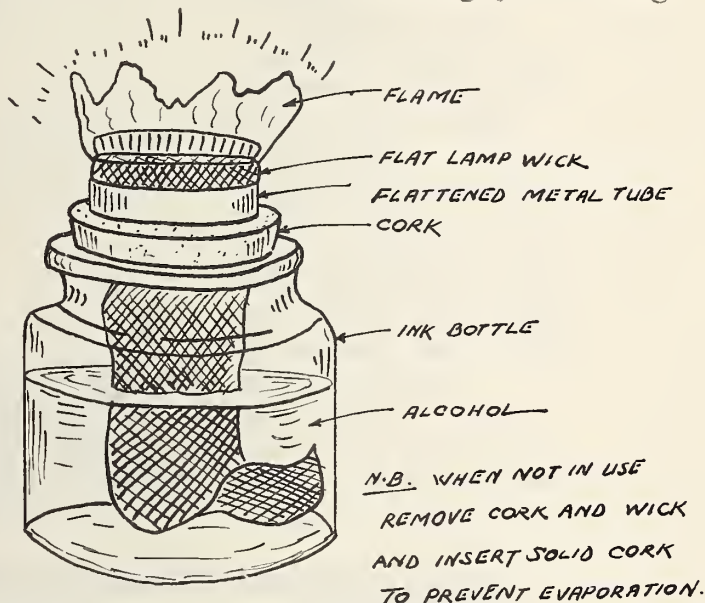 FLAME
FLAT LAMP WICK
FLATTENED METAL TUBE
CORK
INK BOTTLE
ALCOHOL
N.B. WHEN NOT IN USE
REMOVE CORK AND WICK
AND INSERT SOLID CORK
TO PREVENT EVAPORATION.